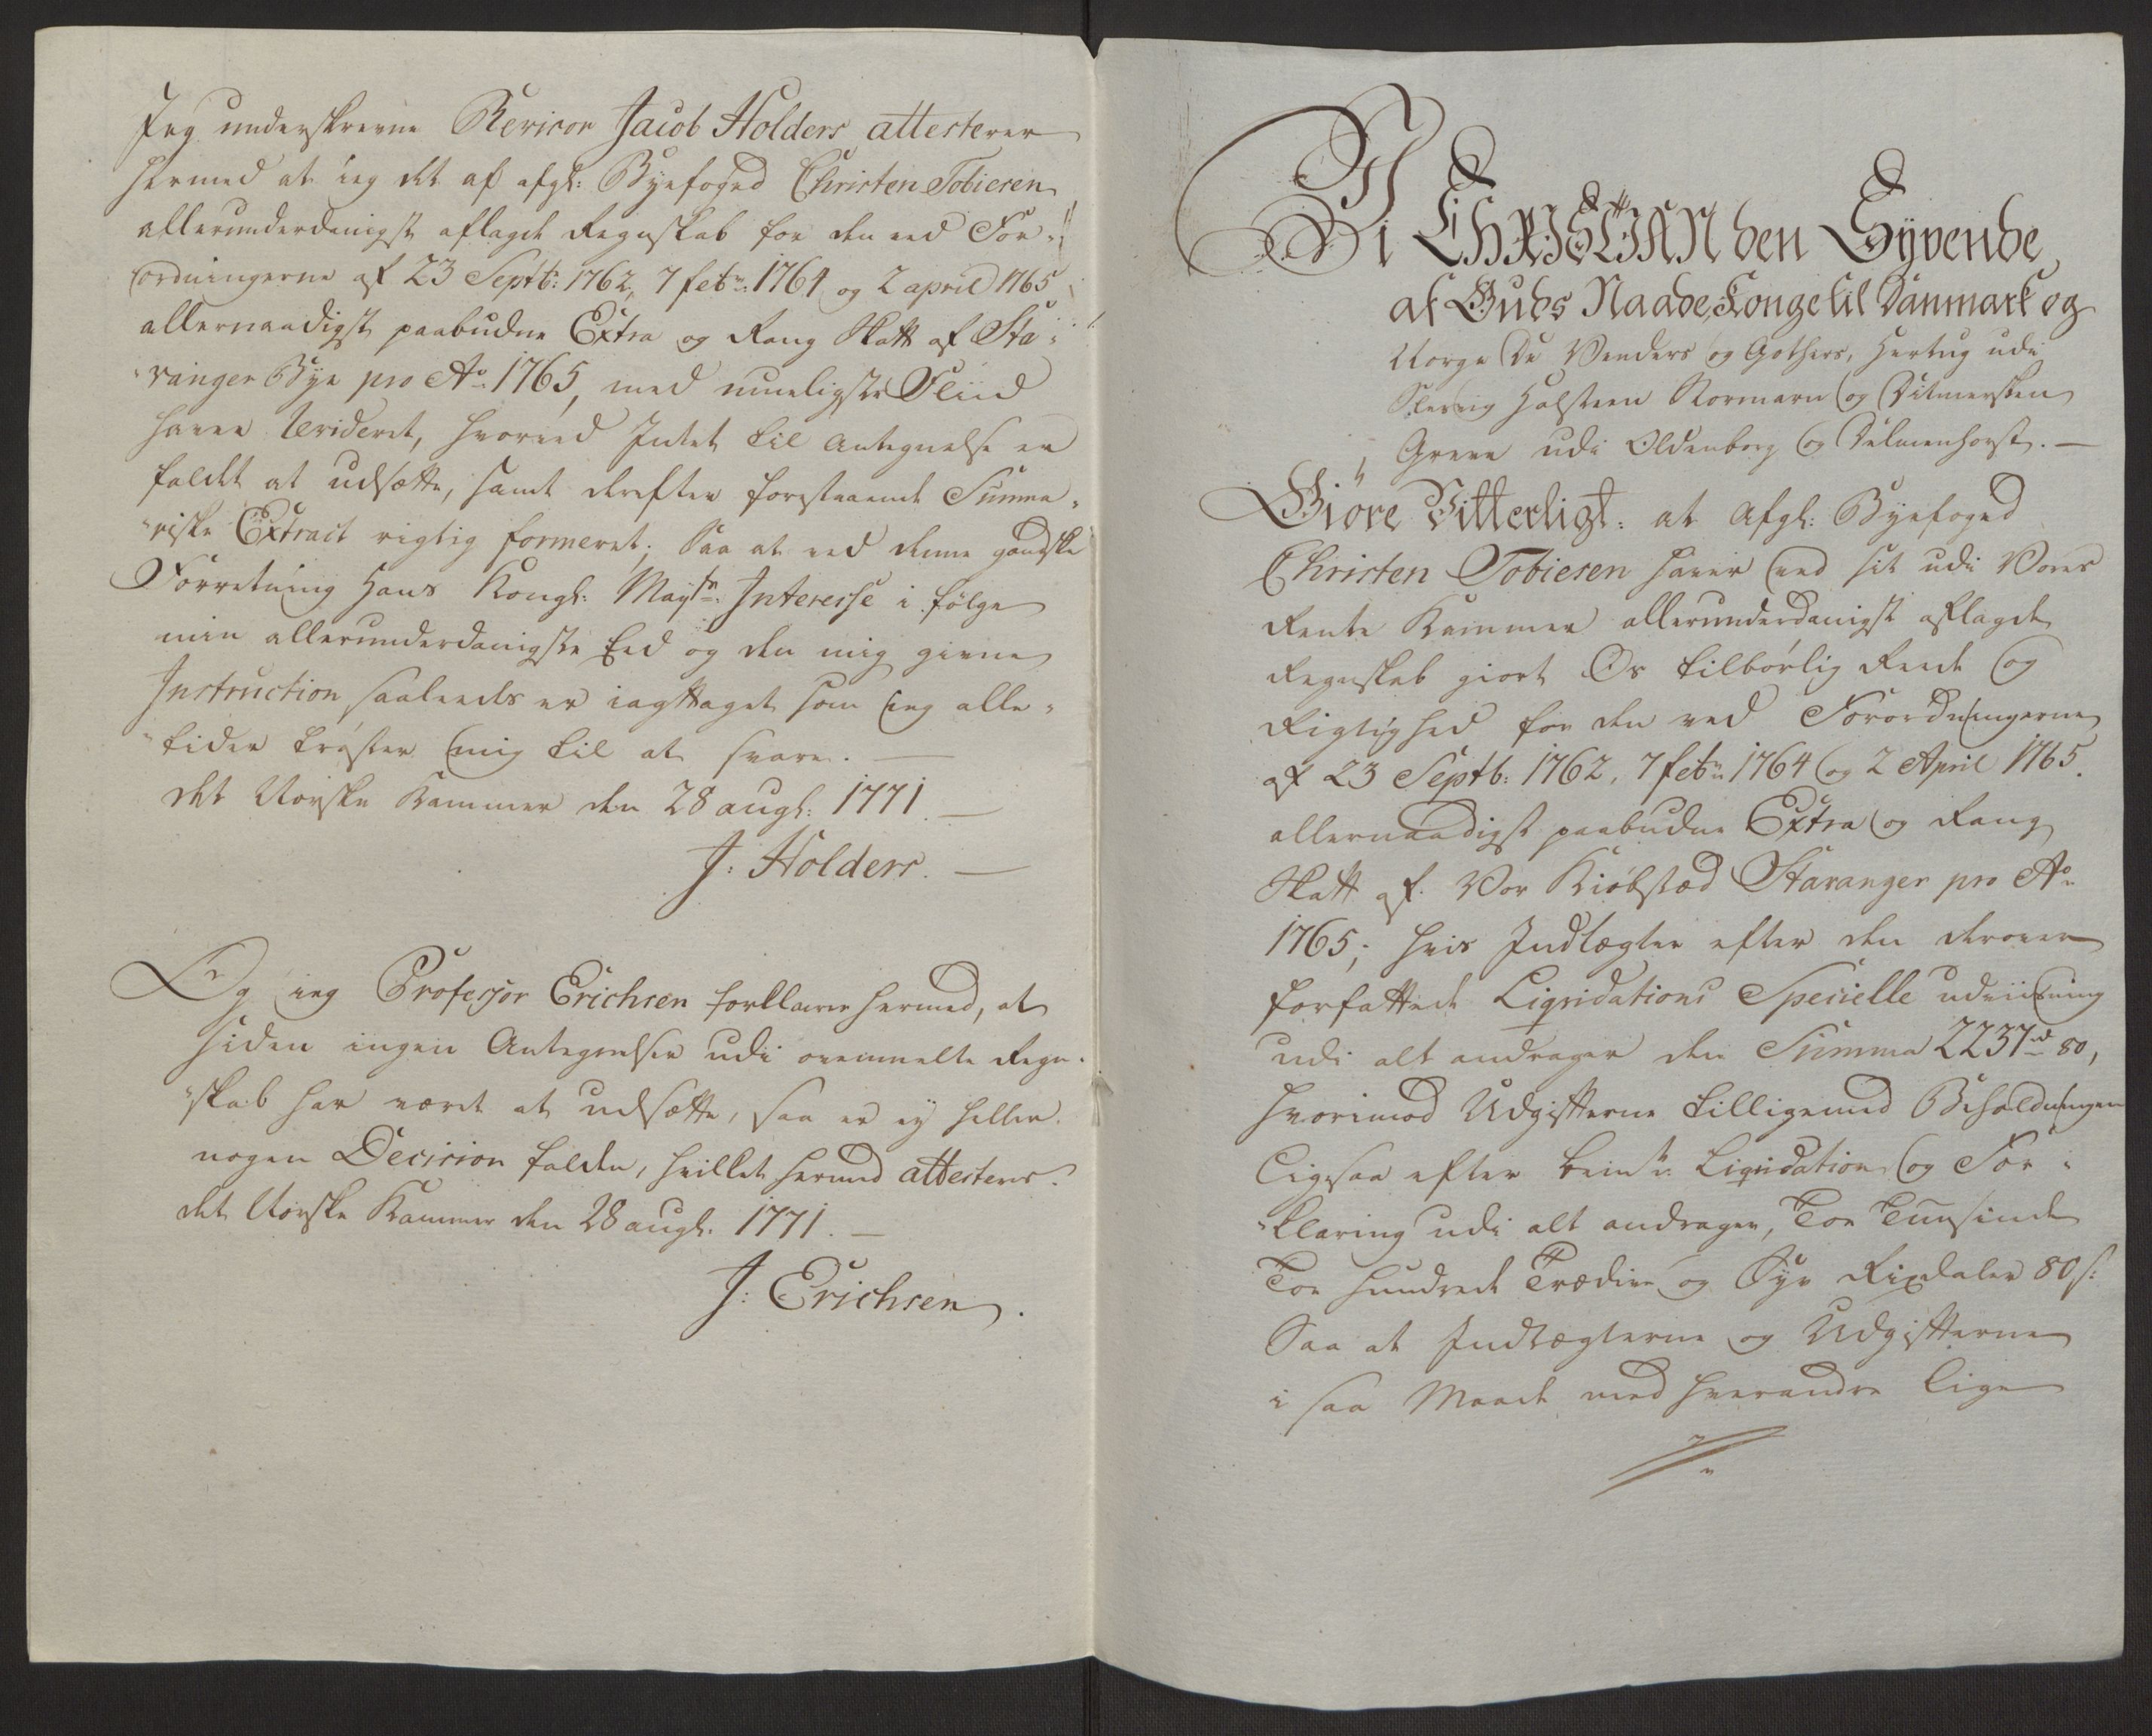 Jeg underskrevne Revisor Jacob Holders attesterer
hermed at ieg det af afgl: Byefoged Christen Tobiesen
allerunderdanigst aflagde Regnskab for den ved For-
ordningerne af 23 Septb: 1762, 7 febr: 1764 og 2 april 1765
allernaadigst paabudne Extra og Rang Skatt af Sta-
vanger Bye pro Ao 1765, med mueligste Fliid
haver Revideret, hvorved Intet til Antegnelse er
faldet at udsætte, samt derefter forestaaende Summa-
riske Extract rigtig formeret; Saa at ved denne gandske
Forretning Hans Kongl: Mayts: Interesse i følge
min allerunderdanigste Eed og den mig givne
Instruction saaleedes er iagttaget som ieg alle-
tider trøster mig til at svare. —
det Norske Kammer den 28 aug: 1771. —
J: Holders. —
Og ieg Professor Erichsen forklarer hermed, at
siden ingen Antegnelser udi ovenmelte Regn-
skab har været at udsætte, saa er ej heller
nogen Decision falden, hvilket herved attesteres.
det Norske Kammer den 28 aug: 1771. —
J: Erichsen.
Vi CHRISTIAN den Syvende
af Guds Naade, Konge til Danmark og
Norge De Venders og Gothers, Hertug udi
Slesvig Holsteen Stormarn og Ditmersken
Greve udi Oldenborg og Delmenhorst. —
Giøre Vitterligt: at Afgl: Byefoged
Christen Tobiesen haver ved sit udi Vores
Rente Kammer allerunderdanigst aflagde
Regnskab giort Os tilbørlig Rede og
Rigtighed for den ved Forordningerne
af 23 Septb: 1762, 7 febr: 1764 og 2 April 1765.
allernaadigst paabudne Extra og Rang
Skatt af Vor Kiøbstæd Stavanger pro Ao
1765; hvis Indtægter efter den derover
forfattede Liqvidations Specielle udviisning
udi alt andrager den Summa 2237 rd 80,
hvorimod Udgifterne tilligemed Beholdningen
ligesaa efter bem.te Liqvidation og For-
klaring udi alt andrager, Toe Tuusinde
Toe Hundrede Trædive og Syv Rixdaler 80 s:
Saa at Indtægterne og Udgifterne
i saa Maade med hverandre lige